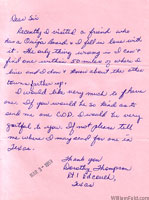 Dear Sir
Recently I visited a friend who
has a Ouija Board & I fell in love with
it. The only thing wrong is I can't
find one within 50 miles of where I
live and I don't know about the other
towns farther up.
I would like very much to have
one. If you would be so kind as to
send me one C.O.D. I would be very
grateful to you. If not please tell
me where I may send for one in
Texas.
Thank you
Dorothy Thompson
Rt 1
Texas
WilliamFuld.com